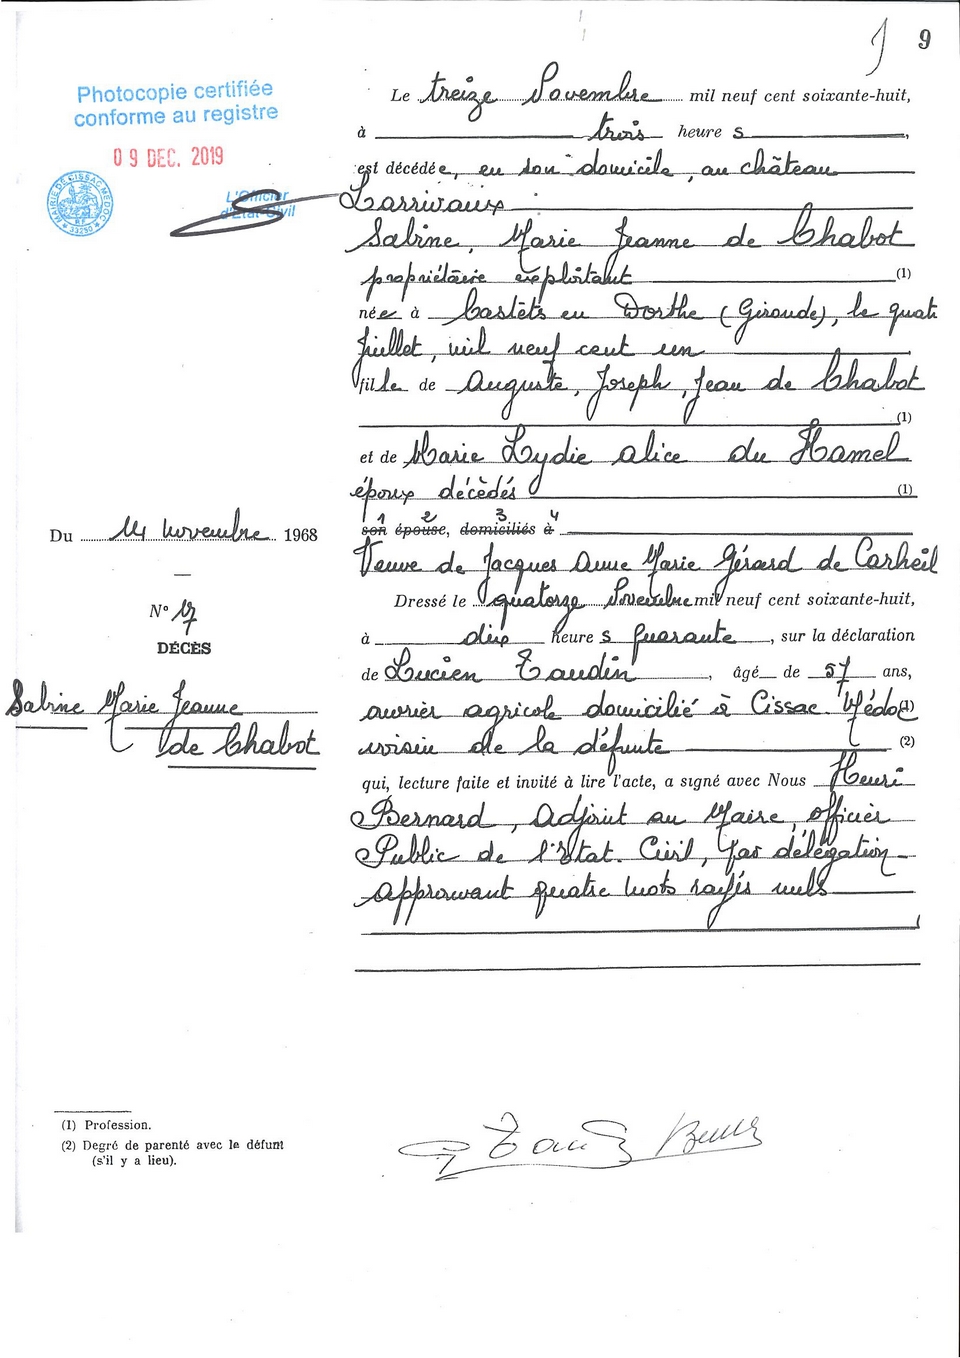 9
Photocopie certifiée
conforme au registre
09 DEC. 2019
MAIRIE DE CISSAC MEDOC
R.F.
33250
L'Officier
d'Etat-Civil
Le treize Novembre mil neuf cent soixante-huit,
à trois heure s,
est décédée, en son domicile, au château
Larrivaux
Sabine, Marie Jeanne de Chabot
propriétaire exploitant (1)
née à Castèts en Dorthe (Gironde), le quatr
Juillet, mil neuf cent un
fille de Auguste, Joseph, Jean de Chabot
(1)
et de Marie Lydie alice du Hamel
époux décédés (1)
1 2 3 4
son épouse, domiciliés à
Veuve de Jacques Anne Marie Gérard de Carheil
Dressé le quatorze Novembre mil neuf cent soixante-huit,
à dix heure s quarante, sur la déclaration
de Lucien Taudin, âgé de 57 ans,
ouvrier agricole domicilié à Cissac Médoc (1)
voisin de la défunte (2)
qui, lecture faite et invité à lire l'acte, a signé avec Nous Henri
Bernard, Adjoint au Maire, officier
Public de l'Etat. Civil, par délégation
approuvant quatre mots rayés nuls
Du 14 novembre 1968
N° 17
DÉCÈS
Sabine Marie Jeanne
de Chabot
(1) Profession.
(2) Degré de parenté avec le défunt
(s'il y a lieu).